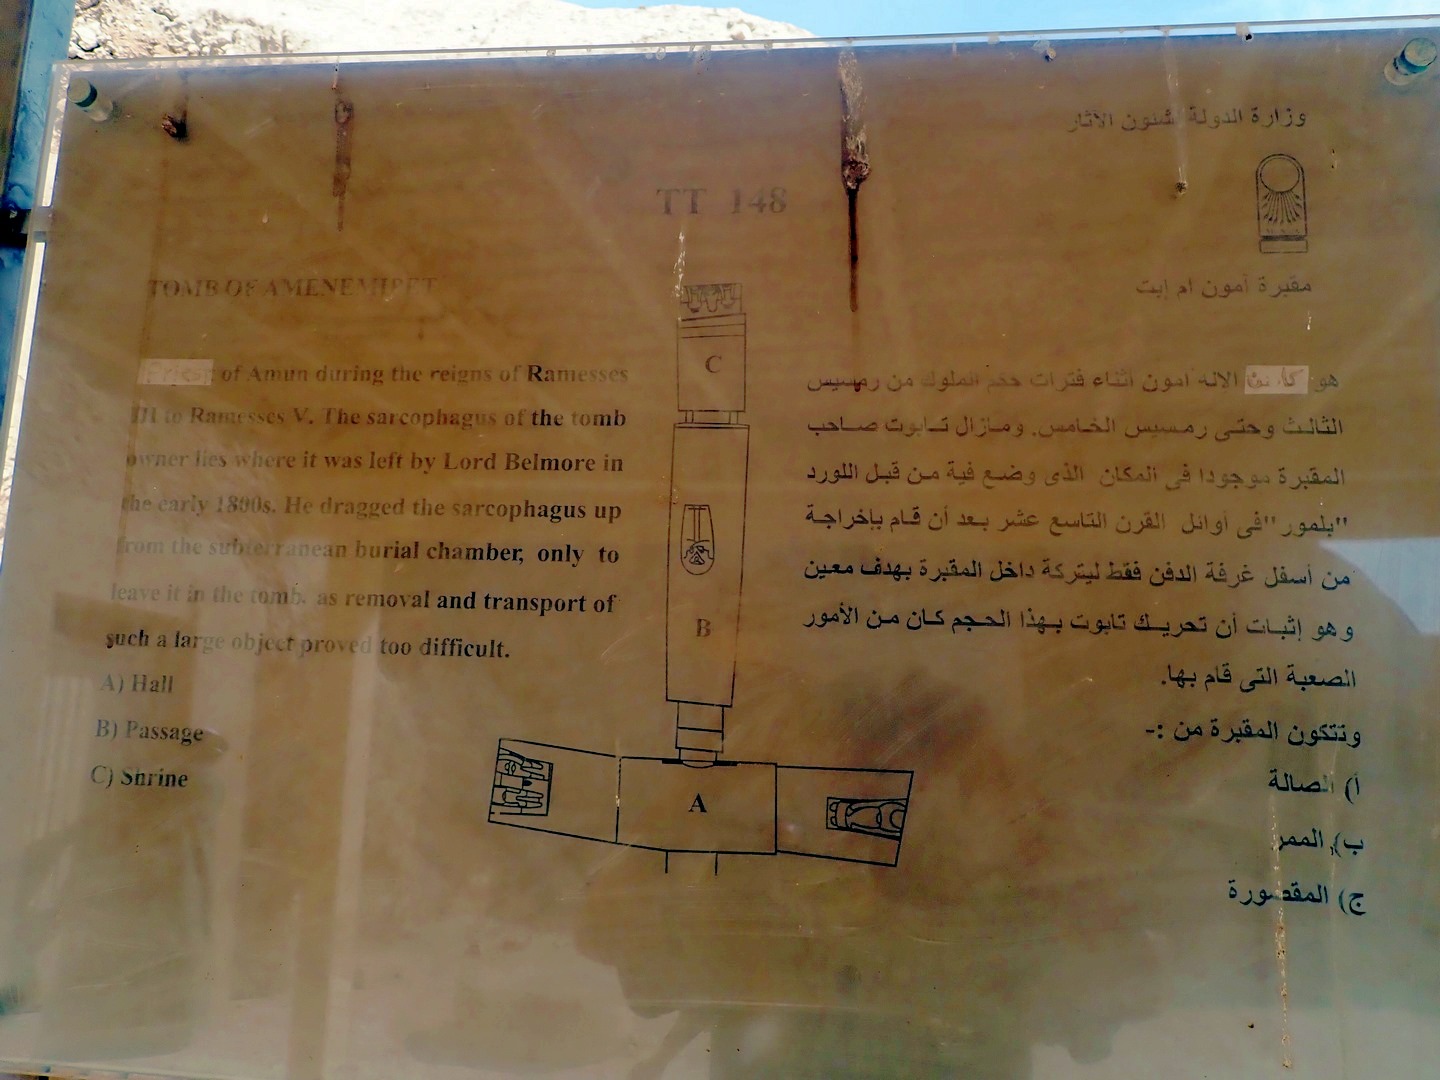 وزارة الدولة لشئون الآثار
TT 148
TOMB OF AMENEMIPET
Priest of Amun during the reigns of Ramesses
III to Ramesses V. The sarcophagus of the tomb
owner lies where it was left by Lord Belmore in
the early 1800s. He dragged the sarcophagus up
from the subterranean burial chamber, only to
leave it in the tomb, as removal and transport of
such a large object proved too difficult.
A) Hall
B) Passage
C) Shrine
C
B
A
مقبرة أمون ام إبت
هو كاهن الاله امون أثناء فترات حكم الملوك من رمسيس
الثالث وحتى رمسيس الخامس. ومازال تابوت صاحب
المقبرة موجودا فى المكان الذى وضع فية من قبل اللورد
"بلمور" فى أوائل القرن التاسع عشر بعد أن قام بإخراجة
من أسفل غرفة الدفن فقط ليتركة داخل المقبرة بهدف معين
وهو إثبات أن تحريك تابوت بهذا الحجم كان من الأمور
الصعبة التى قام بها.
وتتكون المقبرة من :-
أ) الصالة
ب) الممر
ج) المقصورة